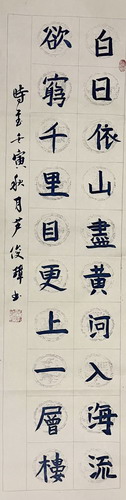 白日依山盡黃河入海流
欲窮千里目更上一層樓
時至壬寅秋月芦俊樺书